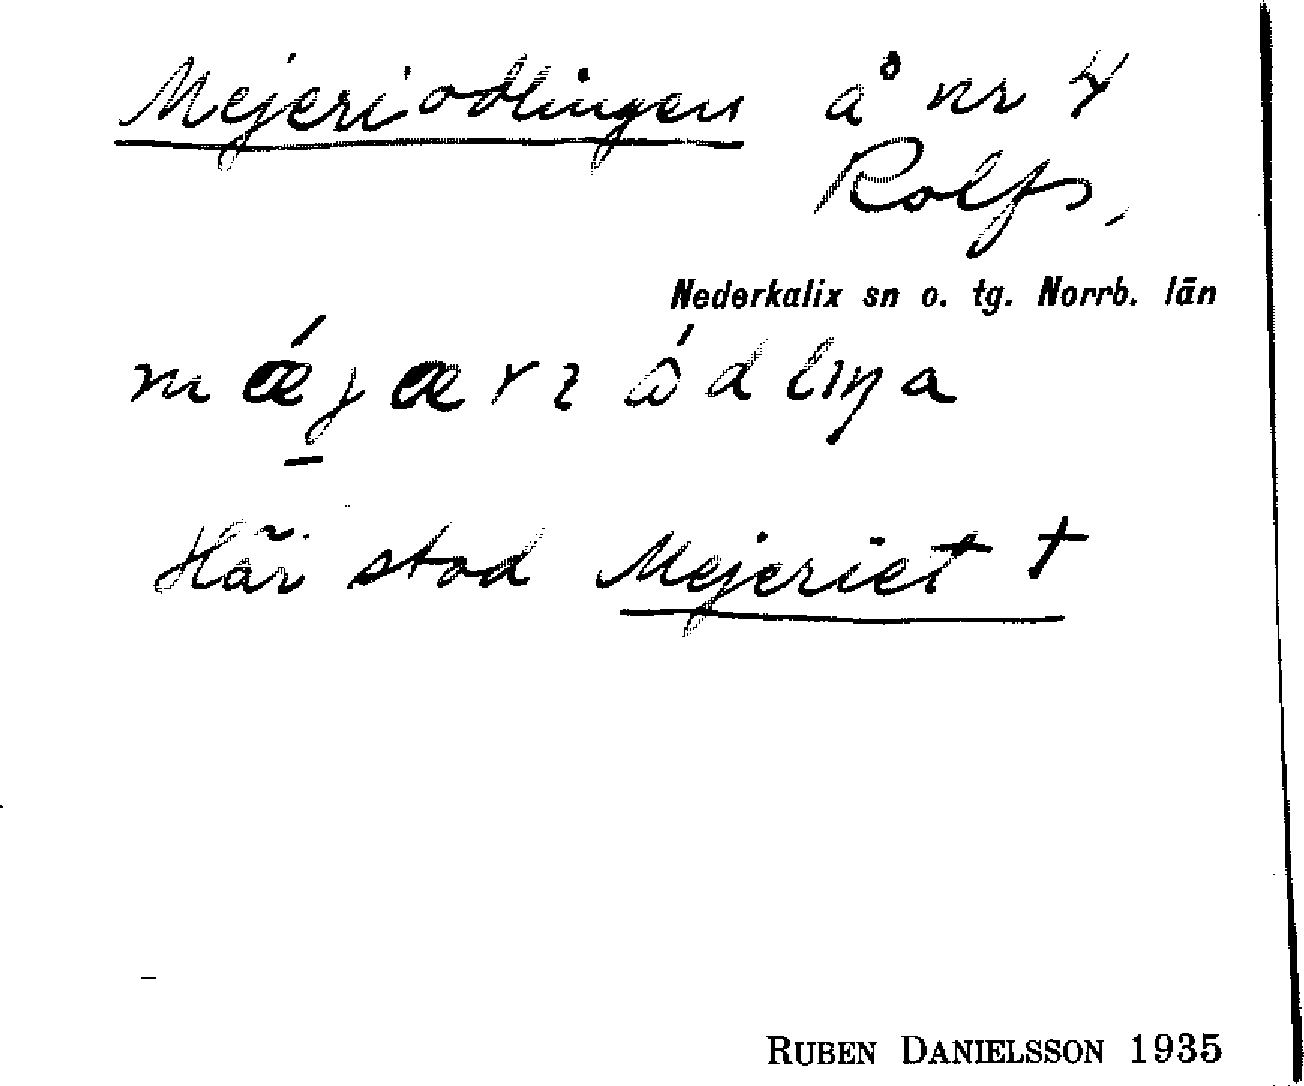 Mejeriodlingen å nr 4
Rolfs,
Nederkalix sn o. tg. Norrb. län
mǽjærı ödlıŋa
Här stod Mejeriet †
RUBEN DANIELSSON 1935